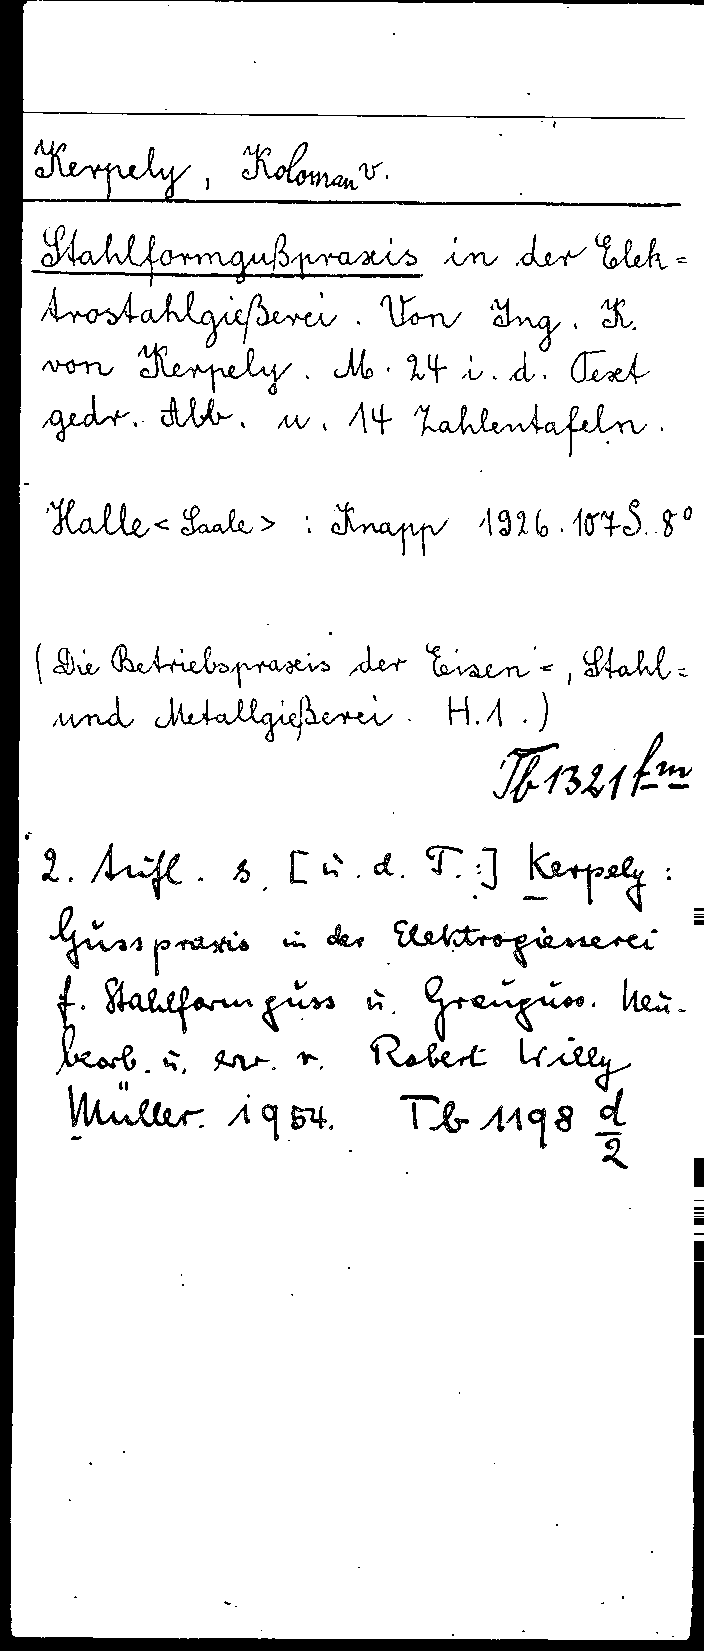 Kerpely, Koloman v.
Stahlformgußpraxis in der Elek=
trostahlgießerei. Von Ing. K.
von Kerpely. M. 24 i. d. Text
gedr. Abb. u. 14 Zahlentafeln.
Halle <Saale> : Knapp 1926. 107 S. 8°
(Die Betriebspraxis der Eisen=, Stahl=
und Metallgießerei. H. 1.)
Tb 1321 fm
2. Aufl. s. [u. d. T.:] Kerpely:
Gusspraxis in der Elektrogiesserei
f. Stahlformguss u. Grauguss. Neu-
bearb. u. erw. v. Robert Willy
Müller. 1954. Tb 1198 d/2